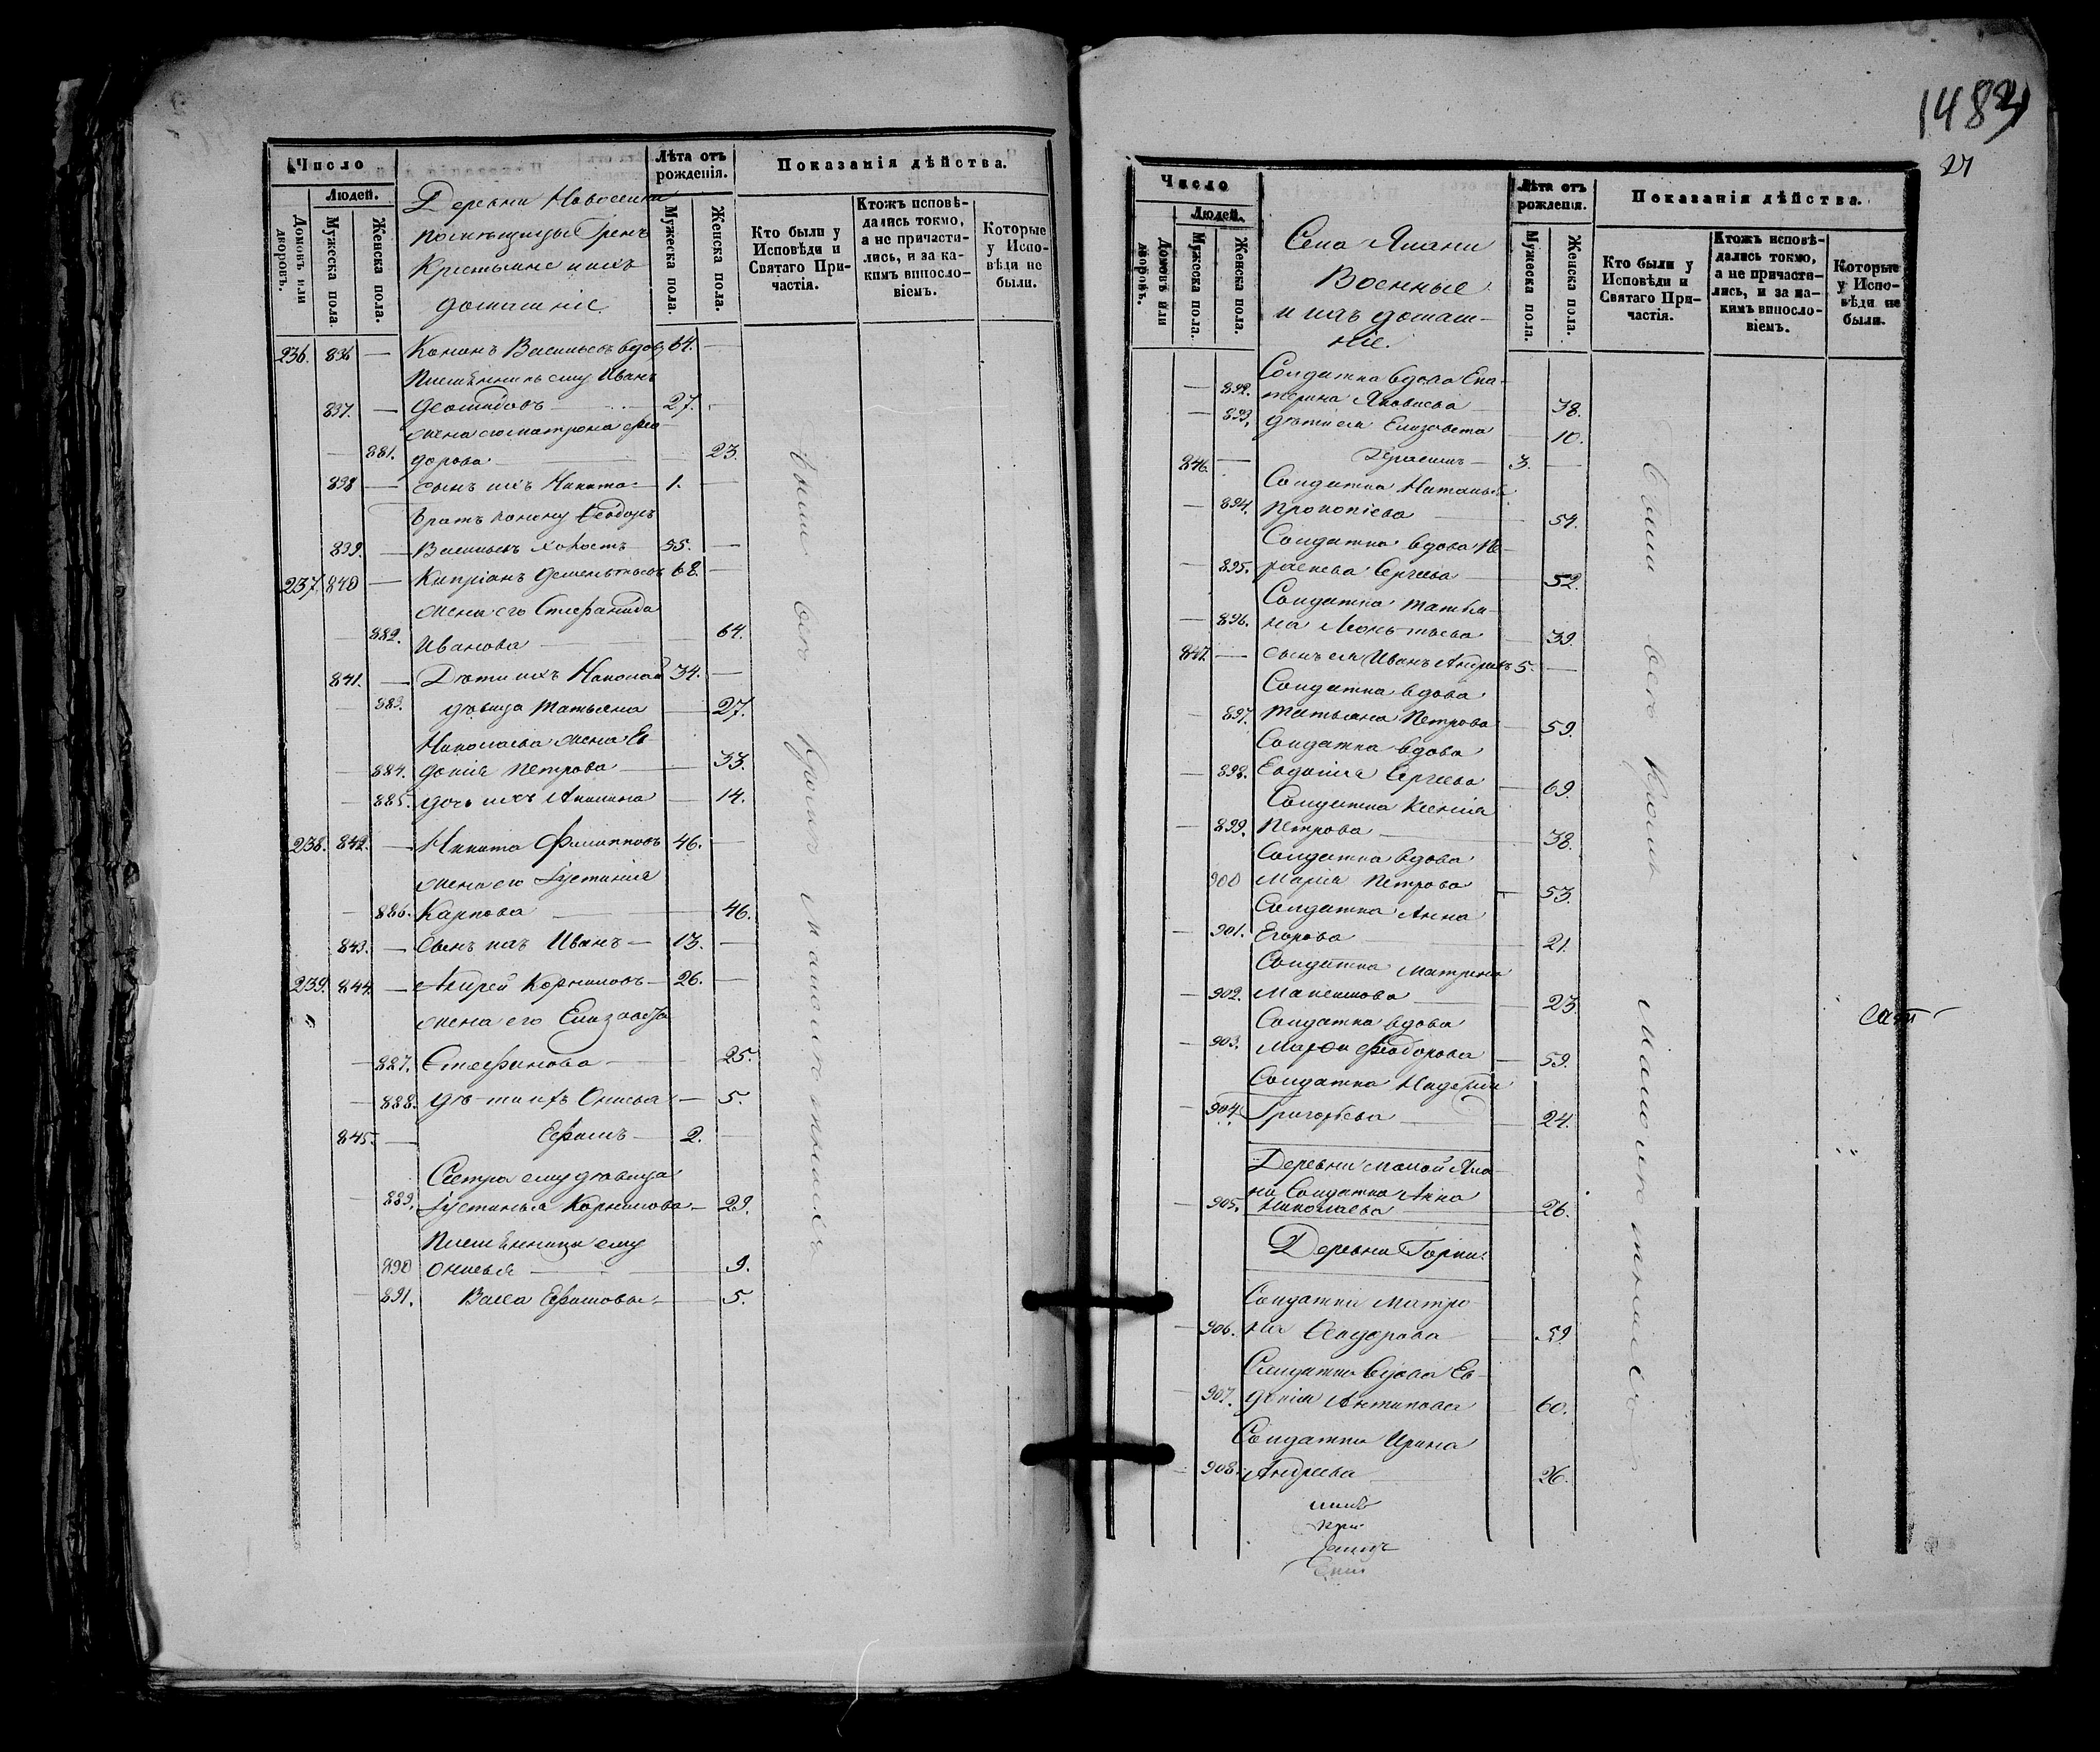 Число
Людей.
Домовъ или дворовъ.
Мужеска пола.
Женска пола.
Деревни Новоселки
помѣщицы Гренъ
Крестьяне и ихъ
домашніе.
Лѣта отъ рожденія.
Мужеска пола.
Женска пола.
Показанія дѣйства.
Кто были у Исповѣди и Святаго Причастія.
Ктожъ исповѣдались токмо, а не причастились, и за какимъ винословіемъ.
Которые у Исповѣди не были.
236. 836 — Кононъ Васильевъ вдовъ 64. —
Племѣнникъ ему Иванъ
837. — 27. —
жена его Матрона Ѳео-
881. дорова — 23.
838 — сынъ ихъ Никита 1. —
братъ Конону Ѳеодоръ
839. — Васильевъ холостъ 55. —
237. 840 — Кипріанъ Дементьевъ 68. —
жена его Стефанида
882. Иванова — 64.
841. — Дѣти ихъ Николай 34. —
883. дѣвица Татьяна — 27.
Николаева жена Ев-
884. докія Петрова — 33.
885. дочь ихъ Акилина — 14.
238. 842. — Никита Филипповъ 46. —
жена его Іустинія
886. Карпова — 46.
843. — сынъ ихъ Иванъ — 13. —
239. 844. — Андрей Корниловъ — 26. —
жена его Елизавета
887. Стефанова — 25.
888. дѣти ихъ Онисья — 5.
845. — Ефимъ — 2. —
Сестра ему дѣвица
889. Іустинья Корнилова — 29.
Племѣнницы ему
890 Онисья — 9.
891. Васса Ефимовы — 5.
Были всѣ кромѣ малолѣтнихъ
1483
27
Число
Людей.
Домовъ или дворовъ.
Мужеска пола.
Женска пола.
Села Ялани
Военные
и ихъ домаш-
ніе.
Лѣта отъ рожденія.
Мужеска пола.
Женска пола.
Показанія дѣйства.
Кто были у Исповѣди и Святаго Причастія.
Ктожъ исповѣдались токмо, а не причастились, и за какимъ винословіемъ.
Которые у Исповѣди не были.
Солдатка вдова Ека-
— 892. терина Яковлева 38.
— 893. дѣти ея Елизавета 10.
846. — Герасимъ — 3. —
Солдатка Наталья
— 894. Прокопіева — 54.
Солдатка вдова Па-
— 895. раскева Сергѣева — 52.
Солдатка Татья-
— 896. на Леонтьева — 39.
847. — сынъ ея Иванъ Андреевъ 5. —
Солдатка вдова
— 897. Татьяна Петрова — 59.
Солдатка вдова
— 898. Евдокія Сергѣева — 69.
Солдатка Ксенія
— 899. Петрова — 38.
Солдатка вдова
900 Марія Петрова — 53.
Солдатка Анна
— 901. Егорова — 21.
Солдатка Матрена
— 902. Максимова — 23
Солдатка вдова
— 903. Марѳа Ѳеодорова — 59.
Солдатка Надежда
— 904. Григорьева — 24.
Деревни Малой Яла-
ни Солдатка Анна
— 905. Николаева — 26.
Деревни Горки.
Солдатка Матро
— 906. на Ѳеодорова — 59.
Солдатка вдова Ев-
— 907. докія Антипова — 60.
Солдатка Ирина
— 908. Андреева — 26.
Были всѣ кромѣ малолѣтнихъ